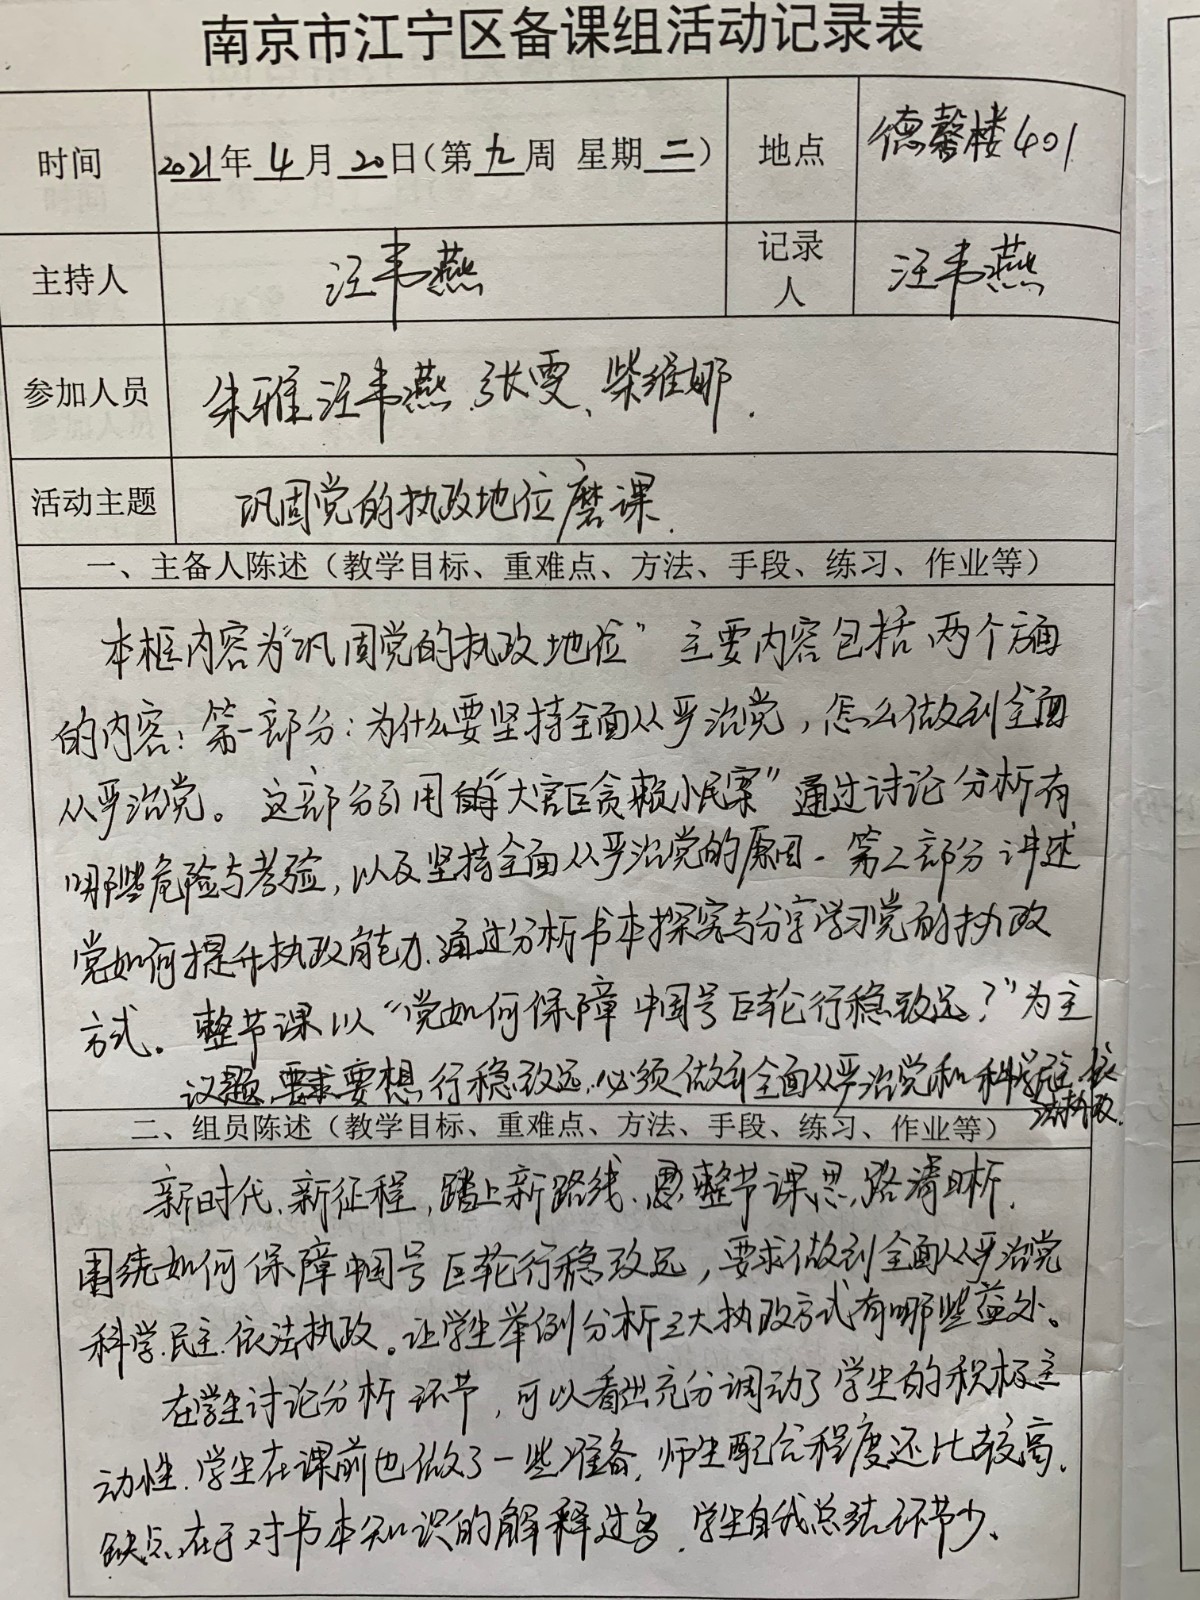 南京市江宁区备课组活动记录表
时间 2021年4月20日(第九周 星期二) 地点 德馨楼401
主持人 汪韦燕 记录人 汪韦燕
参加人员 朱雅 汪韦燕、张雯、柴维娜.
活动主题 巩固党的执政地位磨课.
一、主备人陈述（教学目标、重难点、方法、手段、练习、作业等）
本框内容为“巩固党的执政地位” 主要内容包括两个方面
的内容: 第一部分: 为什么要坚持全面从严治党, 怎么做到全面
从严治党。这部分引用“大官巨贪赖小民案”通过讨论分析有
哪些危险与考验, 以及坚持全面从严治党的原因. 第二部分讲述
党如何提升执政能力. 通过分析书本探究与分享学习党的执政
方式。整节课以“党如何保障中国号巨轮行稳致远?”为主
议题, 要想行稳致远, 必须做到全面从严治党和科学民主依
法执政.
二、组员陈述（教学目标、重难点、方法、手段、练习、作业等）
新时代、新征程, 踏上新路线. 整节课思路清晰.
围绕如何保障中国号巨轮行稳致远, 要求做到全面从严治党
科学.民主.依法执政。让学生举例分析三大执政方式有哪些益处。
在学生讨论分析环节, 可以看出充分调动了学生的积极主
动性. 学生在课前也做了一些准备, 师生配合程度还比较高.
缺点在于对书本知识的解释过多, 学生自我总结环节少.